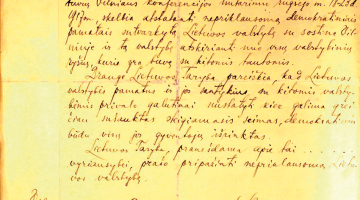 Vilniaus konferencijos nutarimu rugsėjo m. 18-23 d.
1917 m., skelbia atstatanti nepriklausomą demokratiniais
pamatais sutvarkytą Lietuvos valstybę su sostine Vil-
niuje ir tą valstybę atskirianti nuo visų valstybinių
ryšių, kurie yra buvę su kitomis tautomis.
Drauge Lietuvos Taryba pareiškia, kad Lietuvos
valstybės pamatus ir jos santykius su kitomis valsty-
bėmis privalo galutinai nustatyti kiek galima grei-
čiau sušauktas steigiamasis seimas, demokratiniu
būdu visų jos gyventojų išrinktas.
Lietuvos Taryba, pranešdama apie tai . . . . .
vyriausybei, prašo pripažinti nepriklausomą Lietu-
vos valstybę.